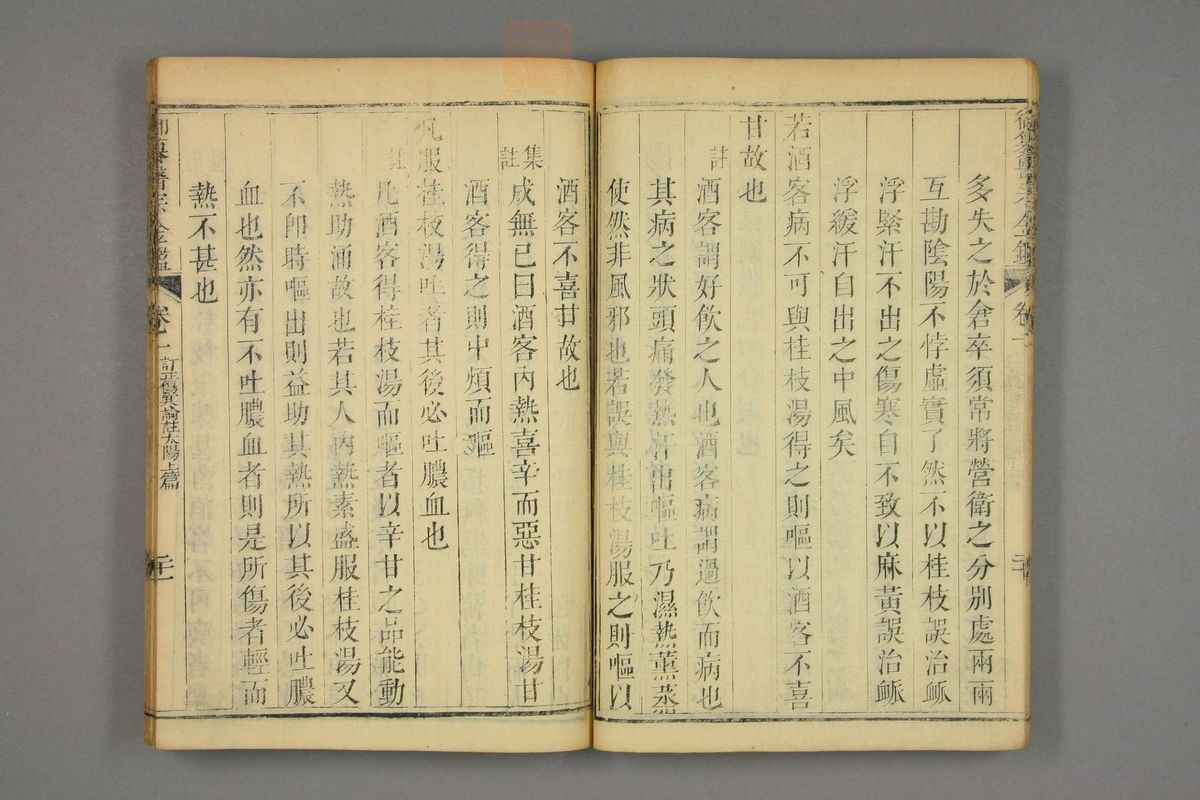 多失之於倉卒須常將營衛之分別處兩兩
互勘陰陽不悖虛實了然不以桂枝誤治脈
浮緊汗不出之傷寒自不致以麻黃誤治脈
浮緩汗自出之中風矣
若酒客病不可與桂枝湯得之則嘔以酒客不喜
甘故也
註 酒客謂好飲之人也酒客病謂過飲而病也
其病之狀頭痛發熱汗出嘔吐乃濕熱薰蒸
使然非風邪也若誤與桂枝湯服之則嘔以
酒客不喜甘故也
集註 成無已曰酒客內熱喜辛而惡甘桂枝湯甘
酒客得之則中煩而嘔
凡服桂枝湯吐者其後必吐膿血也
註 凡酒客得桂枝湯而嘔者以辛甘之品能動
熱助涌故也若其人內熱素盛服桂枝湯又
不卽時嘔出則益助其熱所以其後必吐膿
血也然亦有不吐膿血者則是所傷者輕而
熱不甚也
卷一 訂正傷寒論註太陽上篇 二十一